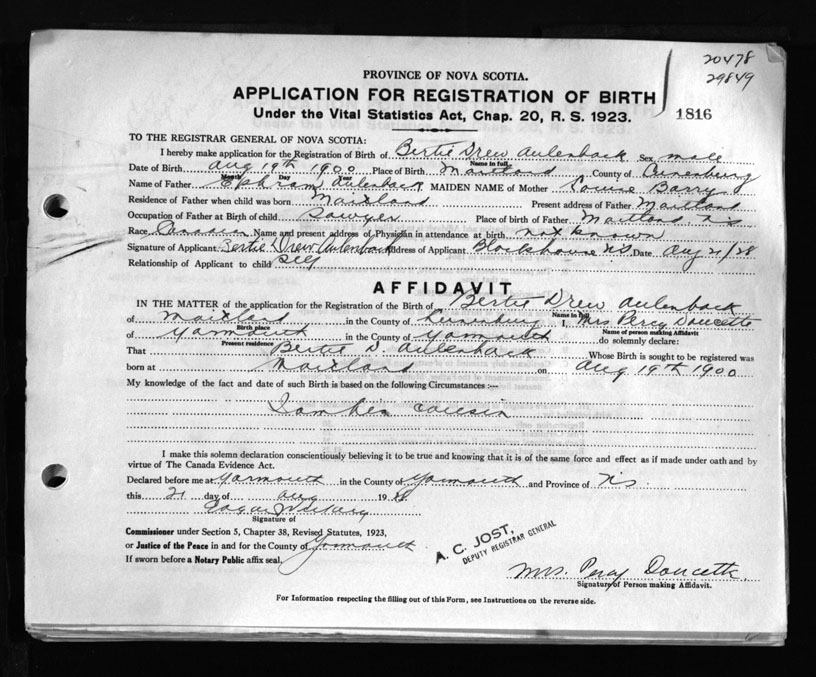 20478
29849
PROVINCE OF NOVA SCOTIA.
APPLICATION FOR REGISTRATION OF BIRTH
Under the Vital Statistics Act, Chap. 20, R. S. 1923.
1816
TO THE REGISTRAR GENERAL OF NOVA SCOTIA:
I hereby make application for the Registration of Birth of Bertie Drew Aulenback Sex male
Name in full
Date of Birth Aug 19th 1900 Place of Birth Maitland County of Lunenburg
Month Day Year
Name of Father Ephram Aulenback MAIDEN NAME of Mother Louise Barry
Residence of Father when child was born Maitland Present address of Father Maitland
Occupation of Father at Birth of child Sawyer Place of birth of Father Maitland, N.S.
Race Canadian Name and present address of Physician in attendance at birth not known
Signature of Applicant Bertie Drew Aulenback Address of Applicant Blockhouse N.S. Date Aug 21/28
Relationship of Applicant to child self
AFFIDAVIT
IN THE MATTER of the application for the Registration of the Birth of Bertie Drew Aulenback
Name in full
of Maitland in the County of Lunenburg I, Mrs Percy Doucette
Birth place Name of person making Affidavit
of Yarmouth in the County of Yarmouth do solemnly declare:
Present residence
That Bertie D. Aulenback Whose Birth is sought to be registered was
born at Maitland on Aug 19th 1900
My knowledge of the fact and date of such Birth is based on the following Circumstances :—
I am his cousin
I make this solemn declaration conscientiously believing it to be true and knowing that it is of the same force and effect as if made under oath and by
virtue of The Canada Evidence Act.
Declared before me at Yarmouth in the County of Yarmouth and Province of N.S.
this 21 day of Aug 1928
Signature of
Commissioner under Section 5, Chapter 38, Revised Statutes, 1923,
or Justice of the Peace in and for the County of Yarmouth
If sworn before a Notary Public affix seal.
A. C. JOST,
DEPUTY REGISTRAR GENERAL
Mrs. Percy Doucette
Signature of Person making Affidavit.
For Information respecting the filling out of this Form, see Instructions on the reverse side.